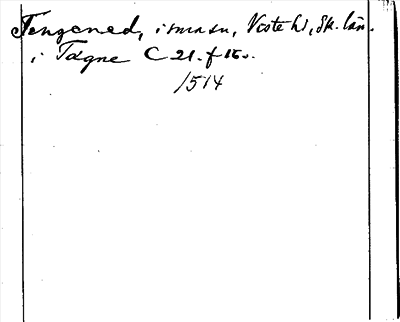 Tengened, ismasn, Viste hd, Sk. län.
i Tägne C 21. f 16v.
1514